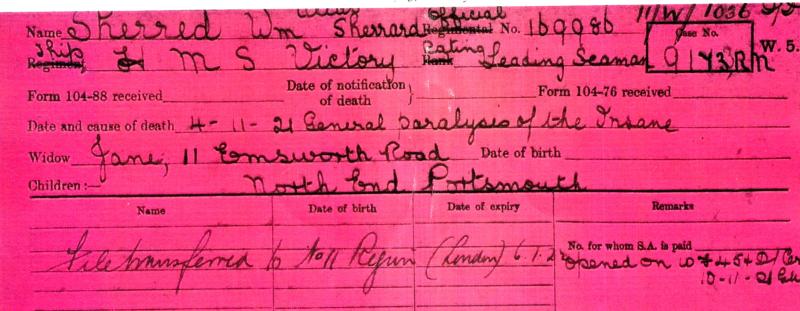 alias Official 11/W/1036
Name Sherred Wm Sherrard Regimental No. 169986 Case No.
Ship Rating W. 5.
Regiment H M S Victory Rank Leading Seaman 9173, RM
Form 104-88 received Date of notification of death } Form 104-76 received
Date and cause of death 4-11-21 General Paralysis of the Insane
Widow Jane, 11 Emsworth Road Date of birth
Children:— North End Portsmouth
Name Date of birth Date of expiry Remarks
File transferred to No 11 Region (London) 6.1.2
No. for whom S.A. is paid
opened on
10-11-21